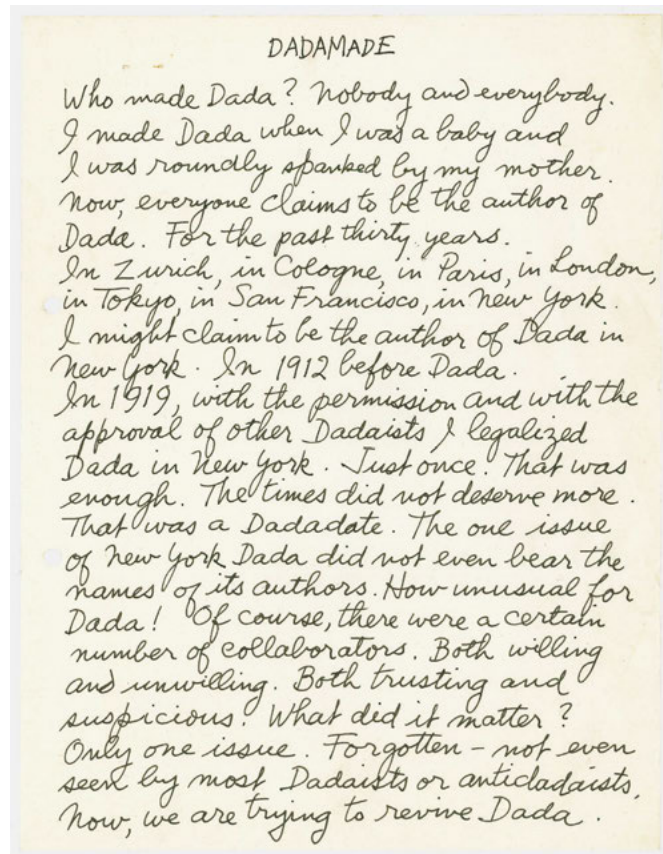 DADAMADE
Who made Dada? Nobody and everybody.
I made Dada when I was a baby and
I was roundly spanked by my mother.
Now, everyone claims to be the author of
Dada. For the past thirty years.
In Zurich, in Cologne, in Paris, in London,
in Tokyo, in San Francisco, in New York.
I might claim to be the author of Dada in
New York. In 1912 before Dada.
In 1919, with the permission and with the
approval of other Dadaists I legalized
Dada in New York. Just once. That was
enough. The times did not deserve more.
That was a Dadadate. The one issue
of New York Dada did not even bear the
names of its authors. How unusual for
Dada! Of course, there were a certain
number of collaborators. Both willing
and unwilling. Both trusting and
suspicious. What did it matter?
Only one issue. Forgotten - not even
seen by most Dadaists or antidadaists.
Now, we are trying to revive Dada.